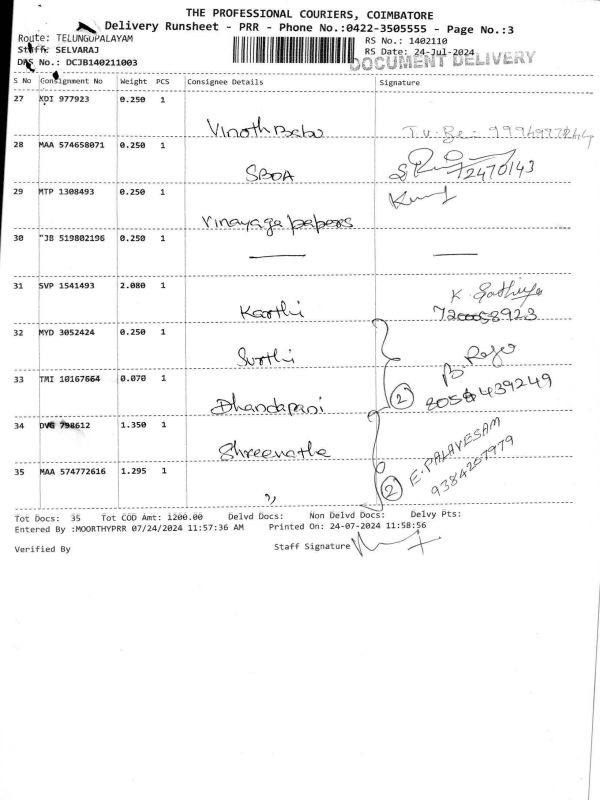 THE PROFESSIONAL COURIERS, COIMBATORE
Delivery Runsheet - PRR - Phone No.:0422-3505555 - Page No.:3
Route: TELUNGUPALAYAM
RS No.: 1402110
Staff: SELVARAJ
RS Date: 24-Jul-2024
DRS No.: DCJB140211003
DOCUMENT DELIVERY
S No Consignment No Weight PCS Consignee Details Signature
27 KDI 977923 0.250 1
Vinoth Babu 9994977244
28 MAA 574658071 0.250 1
SBOA 72470143
29 MTP 1308493 0.250 1
Vinayaga papers
30 "JB 519802196 0.250 1
31 SVP 1541493 2.080 1
Karthi K. Sathiya
32 MYD 3052424 0.250 1
Surthi
33 TMI 10167664 0.070 1
Dhandapani 2
34 DVG 798612 1.350 1
Shreenatha E. PALAVESAM
35 MAA 574772616 1.295 1
" 2 9384267979
Tot Docs: 35 Tot COD Amt: 1200.00 Delvd Docs: Non Delvd Docs: Delvy Pts:
Entered By :MOORTHYPRR 07/24/2024 11:57:36 AM Printed On: 24-07-2024 11:58:56
Verified By Staff Signature